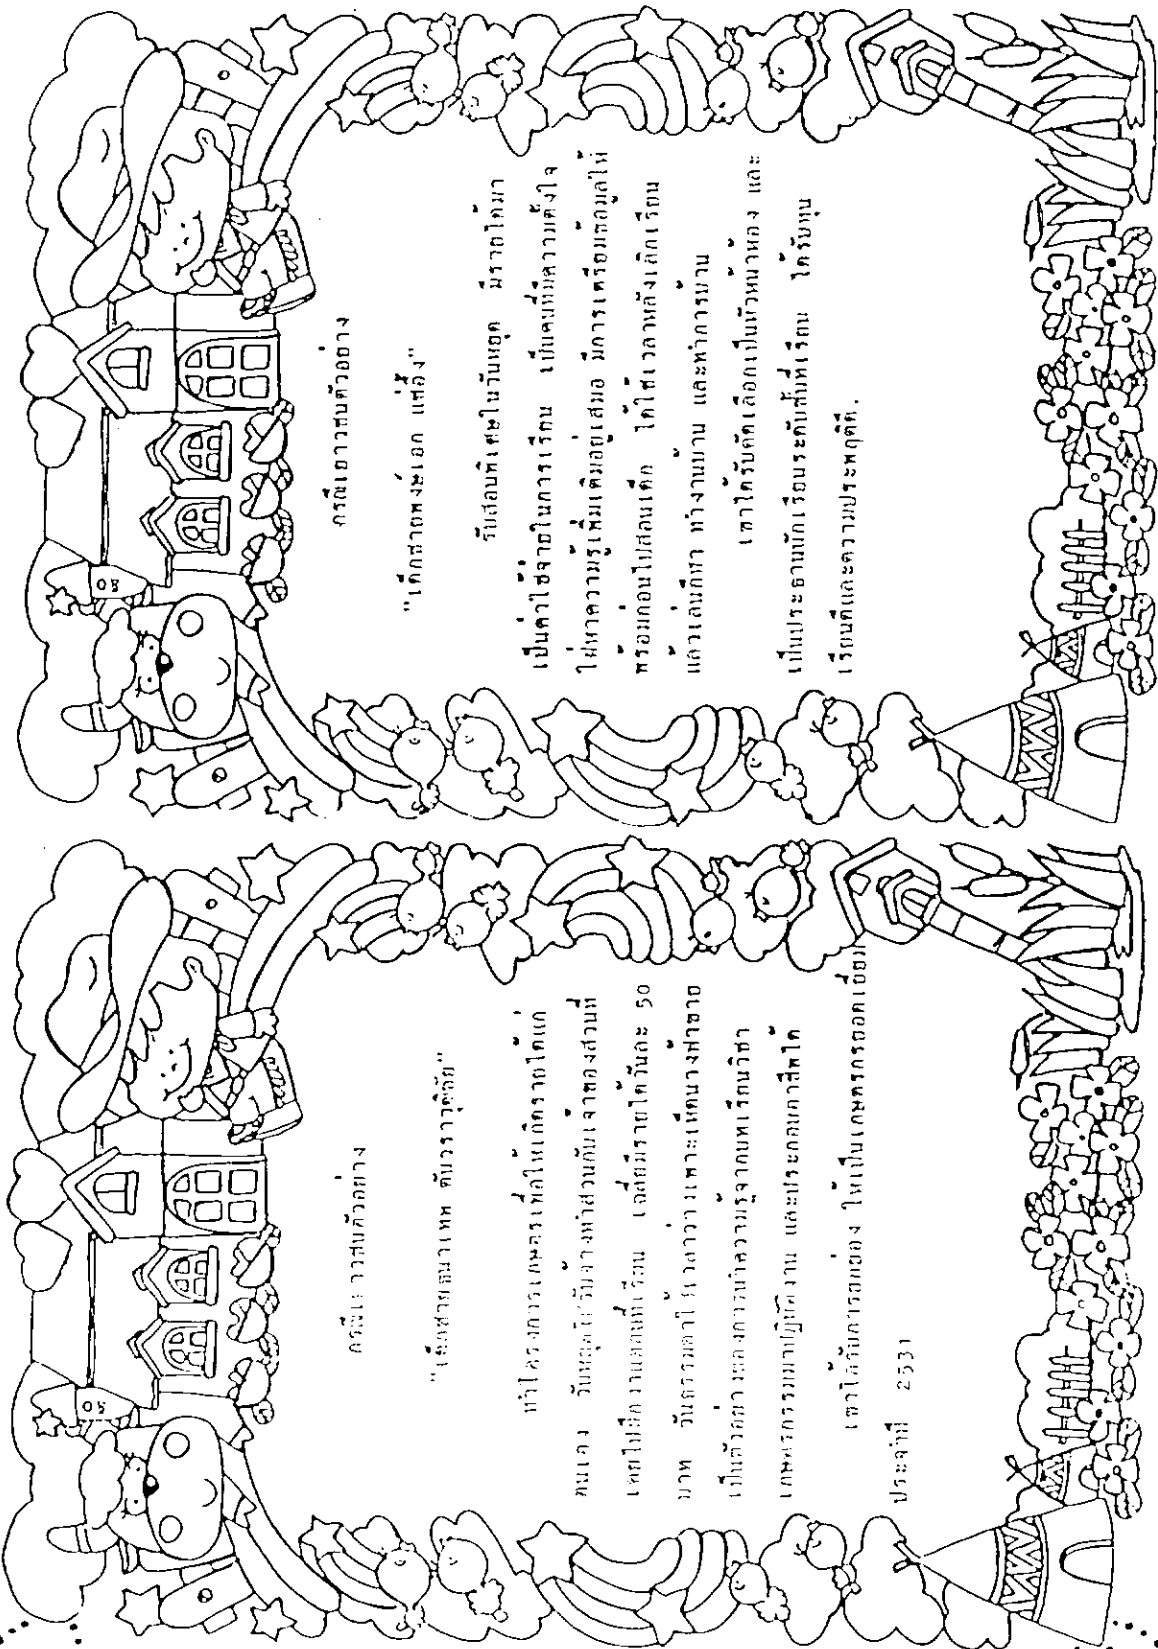 กรณีเยาวชนตัวอย่าง
"เด็กชายพงษ์เอก แซ่อึ้ง"
รับสอนพิเศษในวันหยุด มีรายได้มา
เป็นค่าใช้จ่ายในการเรียน เป็นคนที่มีความตั้งใจ
ใฝ่หาความรู้เพิ่มเติมอยู่เสมอ มีการเตรียมข้อมูลให้
พร้อมก่อนไปสอนเด็ก ได้ใช้เวลาหลังเลิกเรียน
แล้วเล่นกีฬา ทำงานบ้าน และทำการบ้าน
เขาได้รับคัดเลือกเป็นหัวหน้าห้อง และ
เป็นประธานนักเรียนระดับชั้นที่เรียน ได้รับทุน
เรียนดีและความประพฤติดี.
กรณีเยาวชนตัวอย่าง
"เด็กชายธนาเทพ
ทำโครงการเกษตรเพื่อให้เกิดรายได้แก่
ตนเอง วันหยุดไปรับจ้างทำสวนกับเจ้าของสวนที่
เคยไปฝึกงานตอนที่เรียน เฉลี่ยมีรายได้วันละ 50
บาท วันธรรมดาใช้เวลาว่างเพาะเห็ดนางฟ้าขาย
เป็นตัวอย่างของการนำความรู้จากบทเรียนวิชา
เกษตรกรรมมาปฏิบัติงาน และประกอบอาชีพได้
เขาได้รับการยกย่อง ให้เป็นเกษตรกรยอดเยี่ยม
ประจำปี 2531
80
80